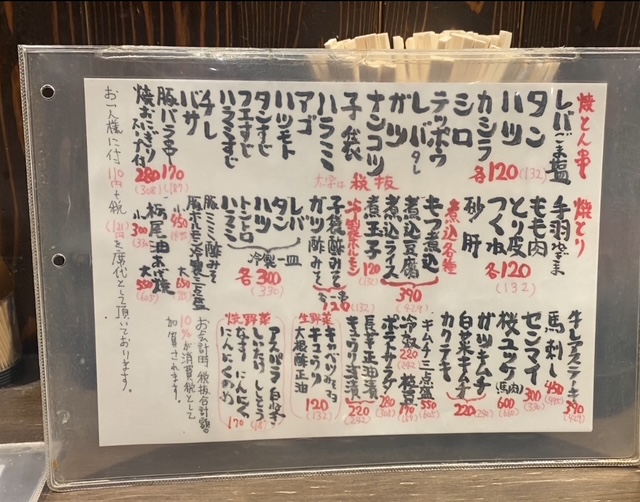 焼とん串
レバごま塩
タン
ハツ
カシラ
各120(132)
シロ
テッポウ
レバタレ
ガツ
ナンコツ
大字は税抜
子袋
ハラミ
アゴ
ハツモト
タンすじ
フエすじ
ハラミすじ
チレ
バサ
豚バラ串
170
(187)
焼おにぎり
280
(308)
焼とり
手羽
もも肉
とり皮
つくね
各120
(132)
砂肝
煮込各種
もつ煮込
煮込豆腐
煮込ライス
390
(429)
煮玉子
120
(132)
冷製ホルモン
子袋酢みそ
ガツ酢みそ
120
(132)
レバ
タン
ハツ
トントロ
ハラミ
冷製一皿
各300
(330)
豚ミミ酢みそ
小450
大650
栃尾油あげ焼
小300
(330)
大550
(605)
牛レアステーキ
カクテキ
390
(429)
馬刺し
450
センマイ
300
(330)
桜ユッケ(馬肉)
600
(660)
ガツキムチ
白菜キムチ
カクテキ
220
キムチ三点盛
550
(605)
冷奴
220
(242)
枝豆
170
ポテサラダ
280
(308)
長芋正油漬
きゅうり浅漬
220
(242)
生野菜
キャベツみそ
キュウリ
大根酢正油
120
(132)
焼野菜
アスパラ
白ネギ
しいたけ
ししとう
なす
にんにく
にんにくのめ
170
(187)
お会計時税抜合計額
10%が消費税として
加算されます。
お一人様に付110円+税(121円)を席代として頂いております。